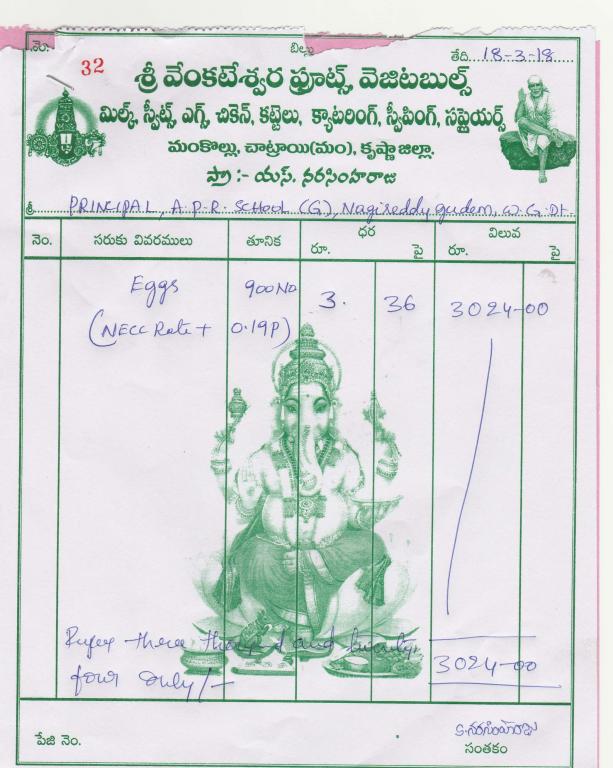 నెం. బిల్లు తేది. 18-3-18
32
శ్రీ వేంకటేశ్వర ఫ్రూట్స్, వెజిటబుల్స్
మిల్క్, స్వీట్స్, ఎగ్స్, చికెన్, కట్టెలు, క్యాటరింగ్, స్వీపింగ్, సప్లైయర్స్
మంకొల్లు, చాట్రాయి(మం), కృష్ణా జిల్లా.
ప్రొ :- యస్. నరసింహరాజు
శ్రీ PRINCIPAL, A.P.R. SCHOOL (G), Nagireddy gudem, W.G.Dt.
నెం. సరుకు వివరములు తూనిక ధర విలువ
రూ. పై రూ. పై
Eggs 900 No 3. 36 3024-00
(NECC Rate + 0.19P)
Rupees three thousand and twenty
four only/-
3024-00
పేజి నెం. S. నరసింహరాజు
సంతకం